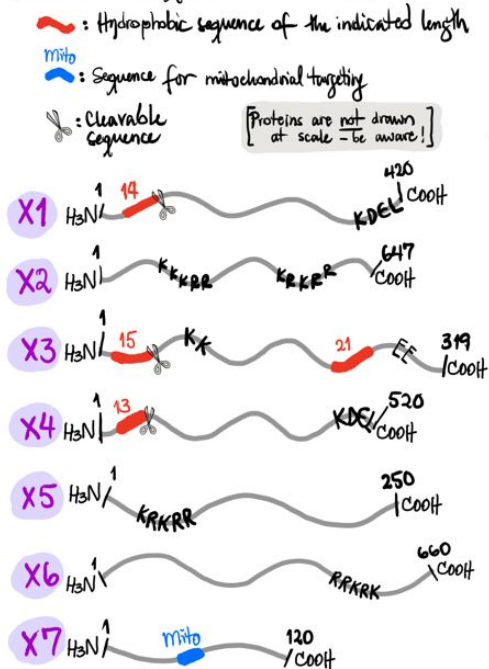 : Hydrophobic sequence of the indicated length
Mito
: Sequence for mitochondrial targeting
: Cleavable sequence
[Proteins are not drawn at scale - be aware!]
X1 H3N 1 14 KDEL 420 COOH
X2 H3N 1 KKKRR KRKRR 647 COOH
X3 H3N 1 15 KK 21 EE 319 COOH
X4 H3N 1 13 KDEL 520 COOH
X5 H3N 1 KRKRR 250 COOH
X6 H3N 1 RRKRK 660 COOH
X7 H3N 1 Mito 120 COOH